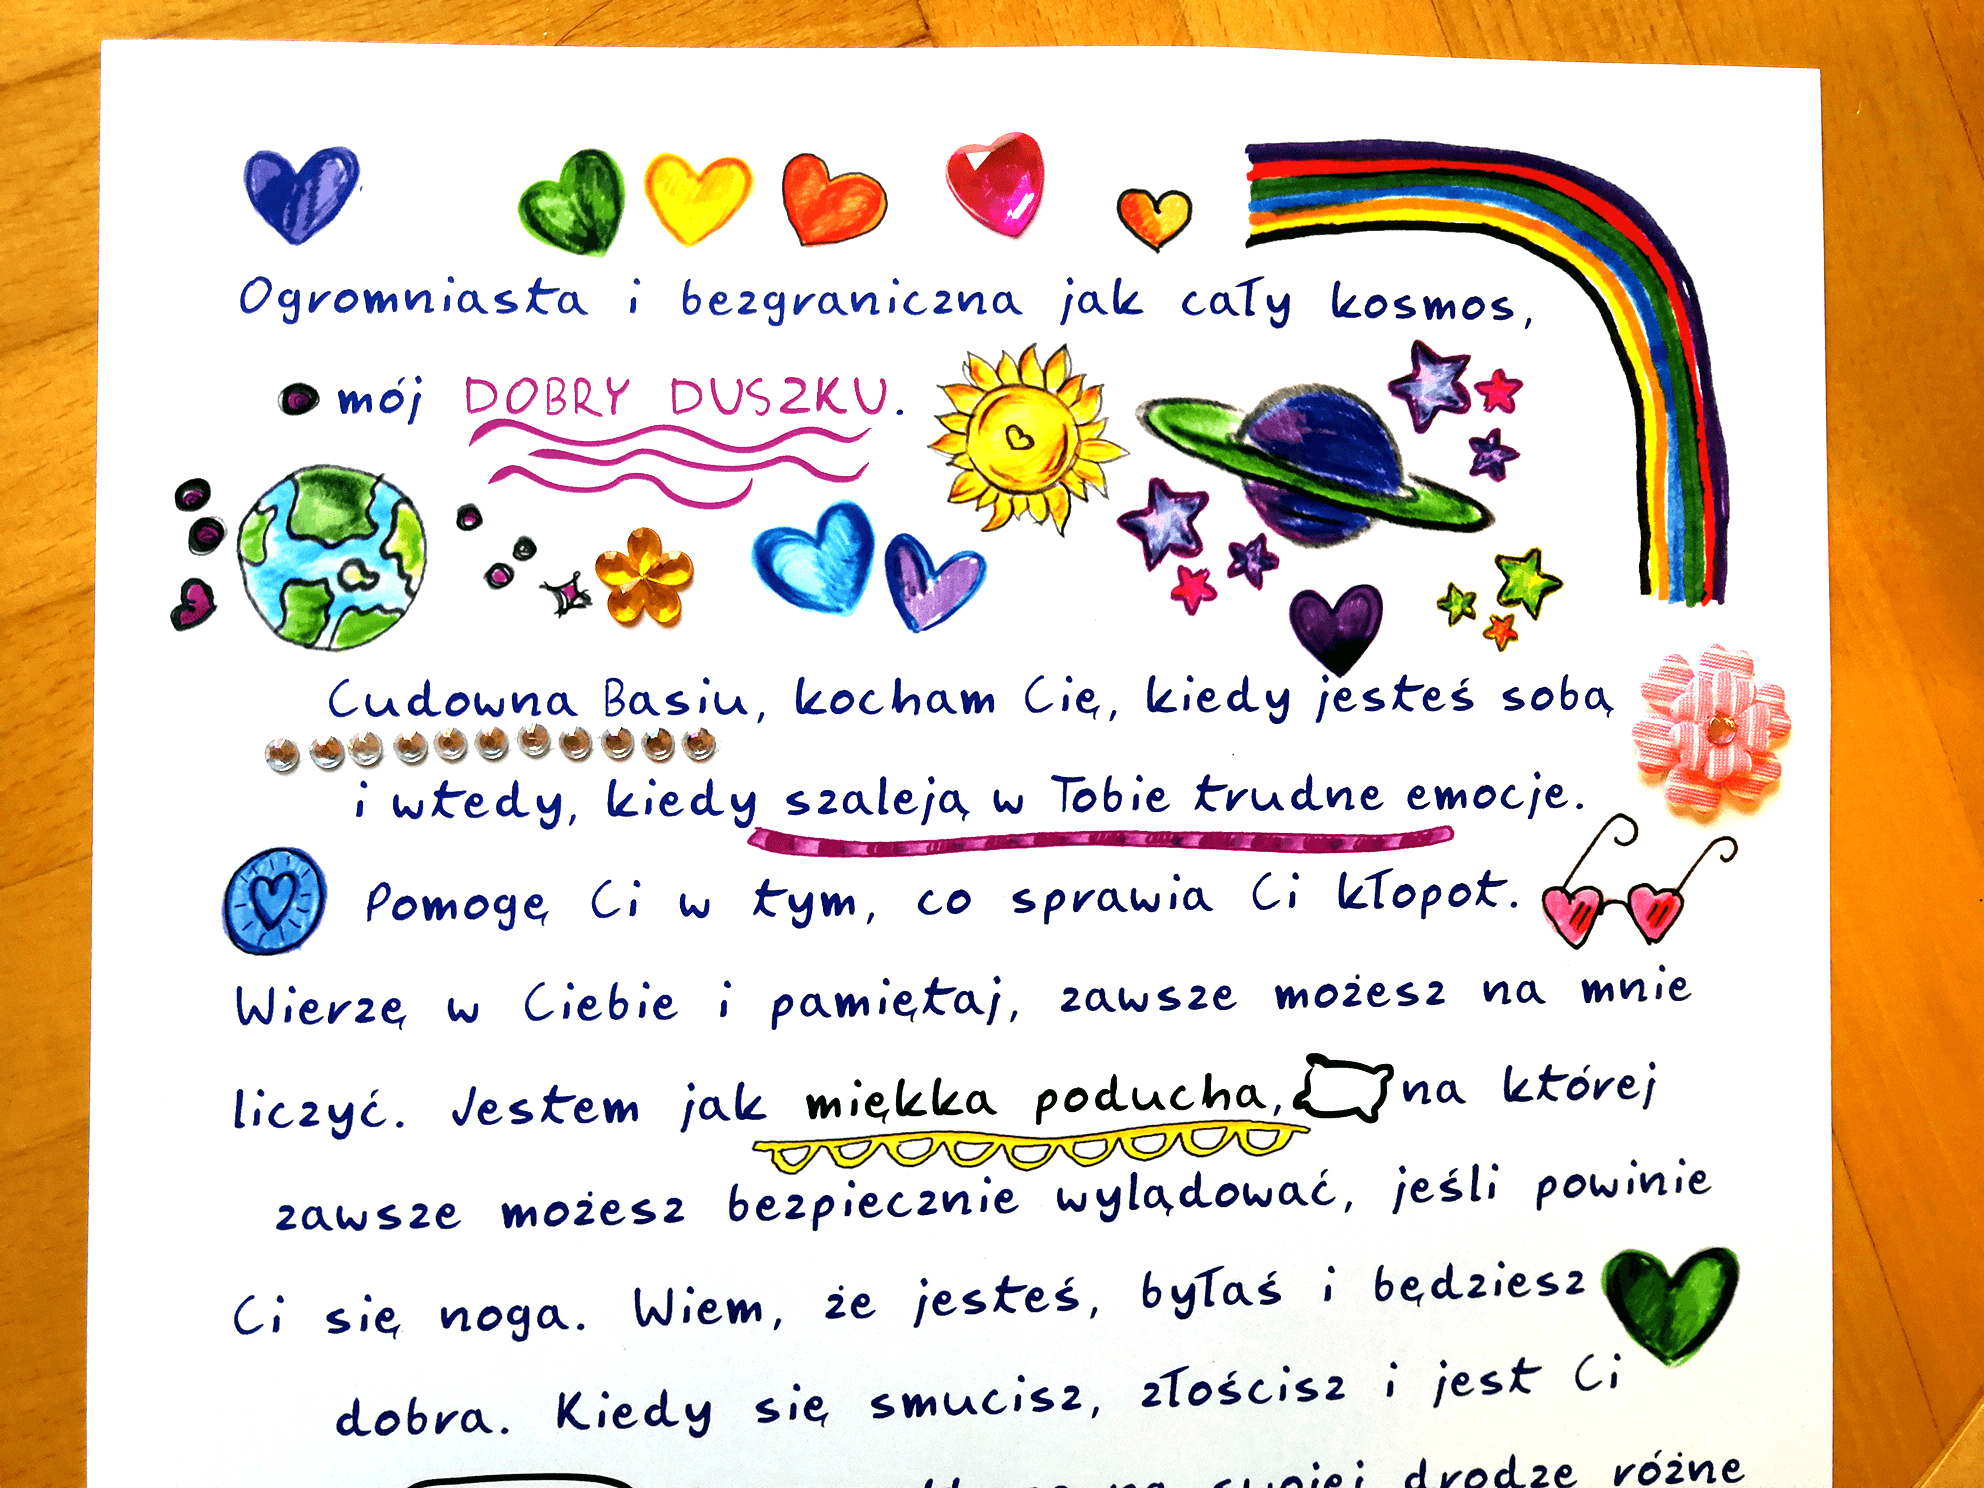 Ogromniasta i bezgraniczna jak cały kosmos,
mój DOBRY DUSZKU.
Cudowna Basiu, kocham Cię, kiedy jesteś sobą
i wtedy, kiedy szaleją w Tobie trudne emocje.
Pomogę Ci w tym, co sprawia Ci kłopot.
Wierzę w Ciebie i pamiętaj, zawsze możesz na mnie
liczyć. Jestem jak miękka poducha, na której
zawsze możesz bezpiecznie wylądować, jeśli powinie
Ci się noga. Wiem, że jesteś, byłaś i będziesz
dobra. Kiedy się smucisz, złościsz i jest Ci
na swojej drodze różne